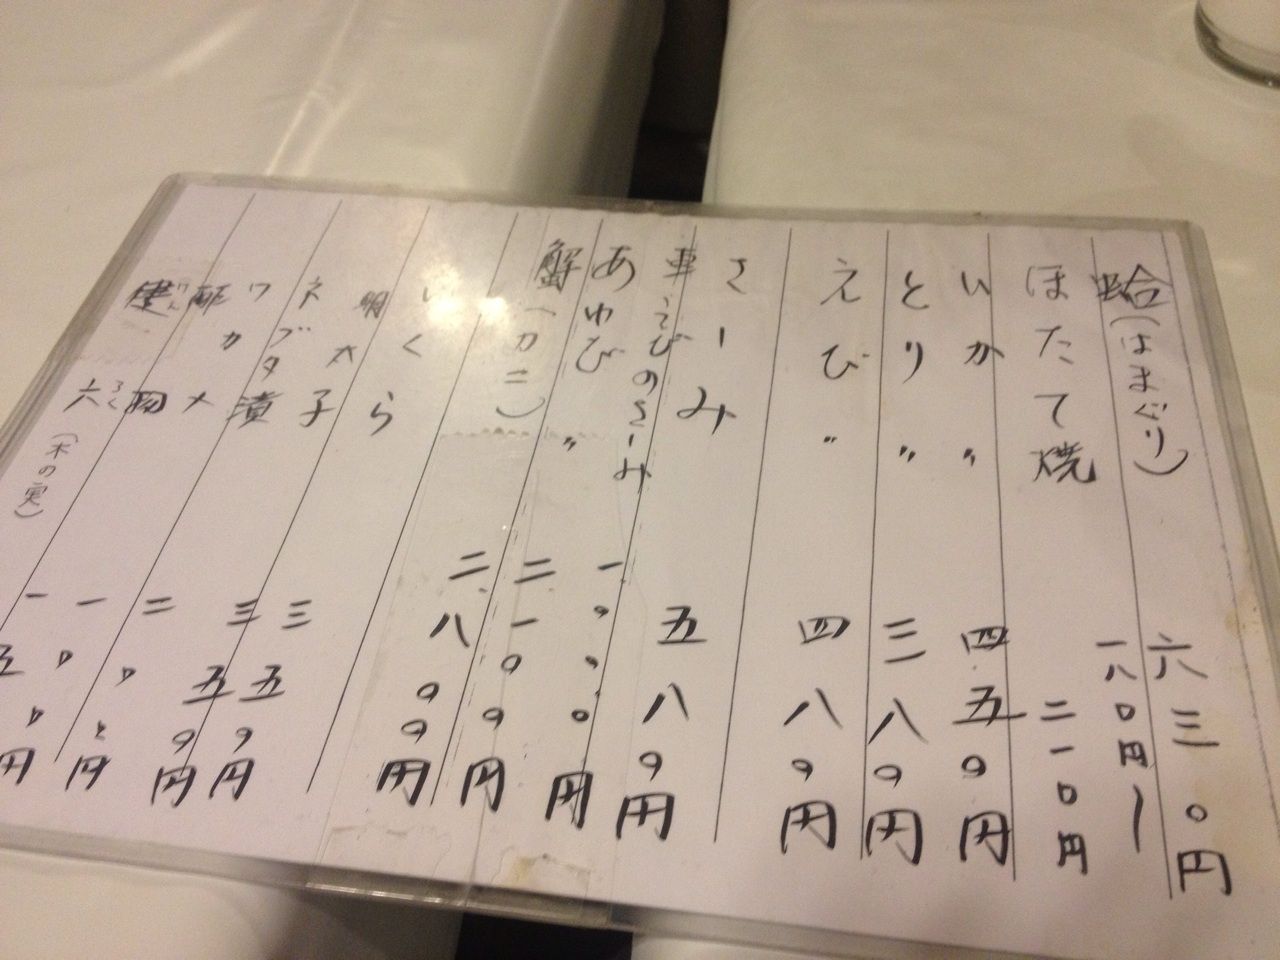 蛤(はまぐり) 六三〇円
ほたて焼 一八〇円〜二一〇円
いか 〃 四五〇円
とり 〃 三八〇円
えび 〃 四八〇円
さしみ 五八〇円
車えびのさしみ 一〇〇〇円
あわび 〃 二一〇〇円
蟹(カニ) 二八〇〇円
いくら 三五〇円
明太子 三五〇円
ネブタ漬 二〇〇円
ワカメ
酢物 一〇〇円
六(木の実) 一五〇円